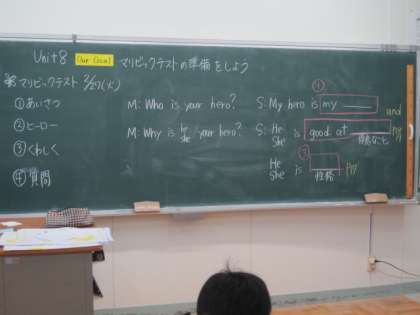 Unit 8 Our Goal マリピックテストの準備をしよう
※マリピックテスト 2/27(火)
①あいさつ M: Who is your hero? S: My hero is my ____ ①
②ヒーロー M: Why is he she your hero? S: He She is good at ____ and
③くわしく 得意なこと
He she is 性格 ②
④質問